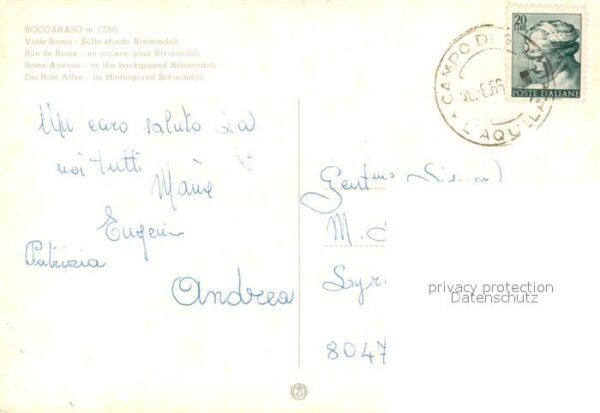 ROCCARASO m. 1250
Viale Roma - Sullo sfondo Rivisondoli
Rue de Rome - en arriere-plan Rivisondoli
Rome Avenue - on the background Rivisondoli
Die Rom Allee - im Hintergrund Rivisondoli
20
LIRE
POSTE ITALIANE
CAMPO DI
L'AQUILA
Un caro saluto da
noi tutti
Eugenio
Patrizia
Andrea
M.
8047
privacy protection
Datenschutz